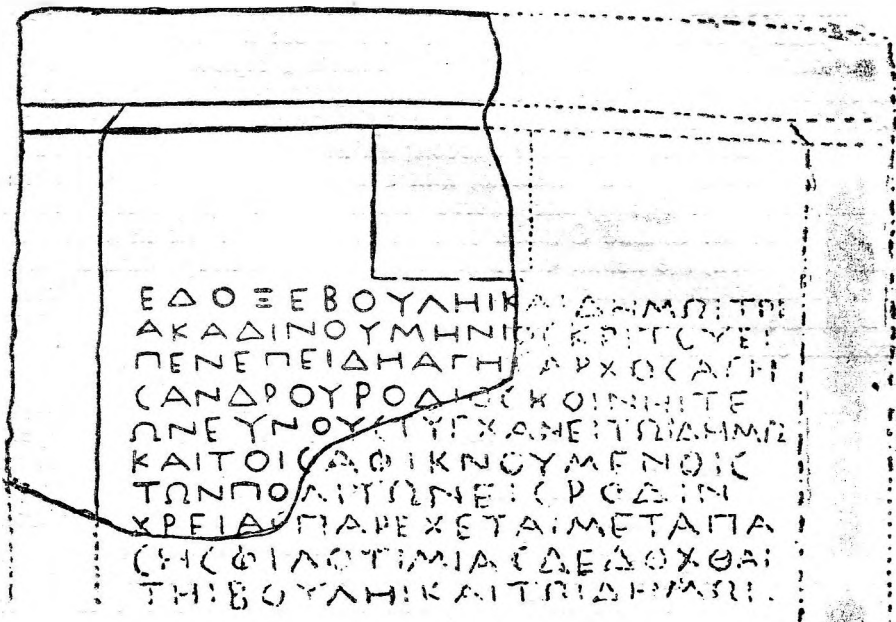 ΕΔΟΞΕΒΟΥΛΗΙΚΑΙΔΗΜΩΙΤΡΙ
ΑΚΑΔΙΝΟΥΜΗΝΙΟϹΚΡΙΤΟΥΕΙ
ΠΕΝΕΠΕΙΔΗΑΓΗϹΑΡΧΟϹΑΓΗ
ϹΑΝΔΡΟΥΡΟΔΙΟϹΚΟΙΝΗΙΤΕ
ΩΝΕΥΝΟΥϹΤΥΓΧΑΝΕΙΤΩΙΔΗΜΩ
ΚΑΙΤΟΙϹΑΦΙΚΝΟΥΜΕΝΟΙϹ
ΤΩΝΠΟΛΙΤΩΝΕΙϹΡΟΔΙΝ
ΧΡΕΙΑϹΠΑΡΕΧΕΤΑΙΜΕΤΑΠΑ
ϹΗϹΦΙΛΟΤΙΜΙΑϹΔΕΔΟΧΘΑΙ
ΤΗΙΒΟΥΛΗΙΚΑΙΤΩΙΔΗΜΩΙ